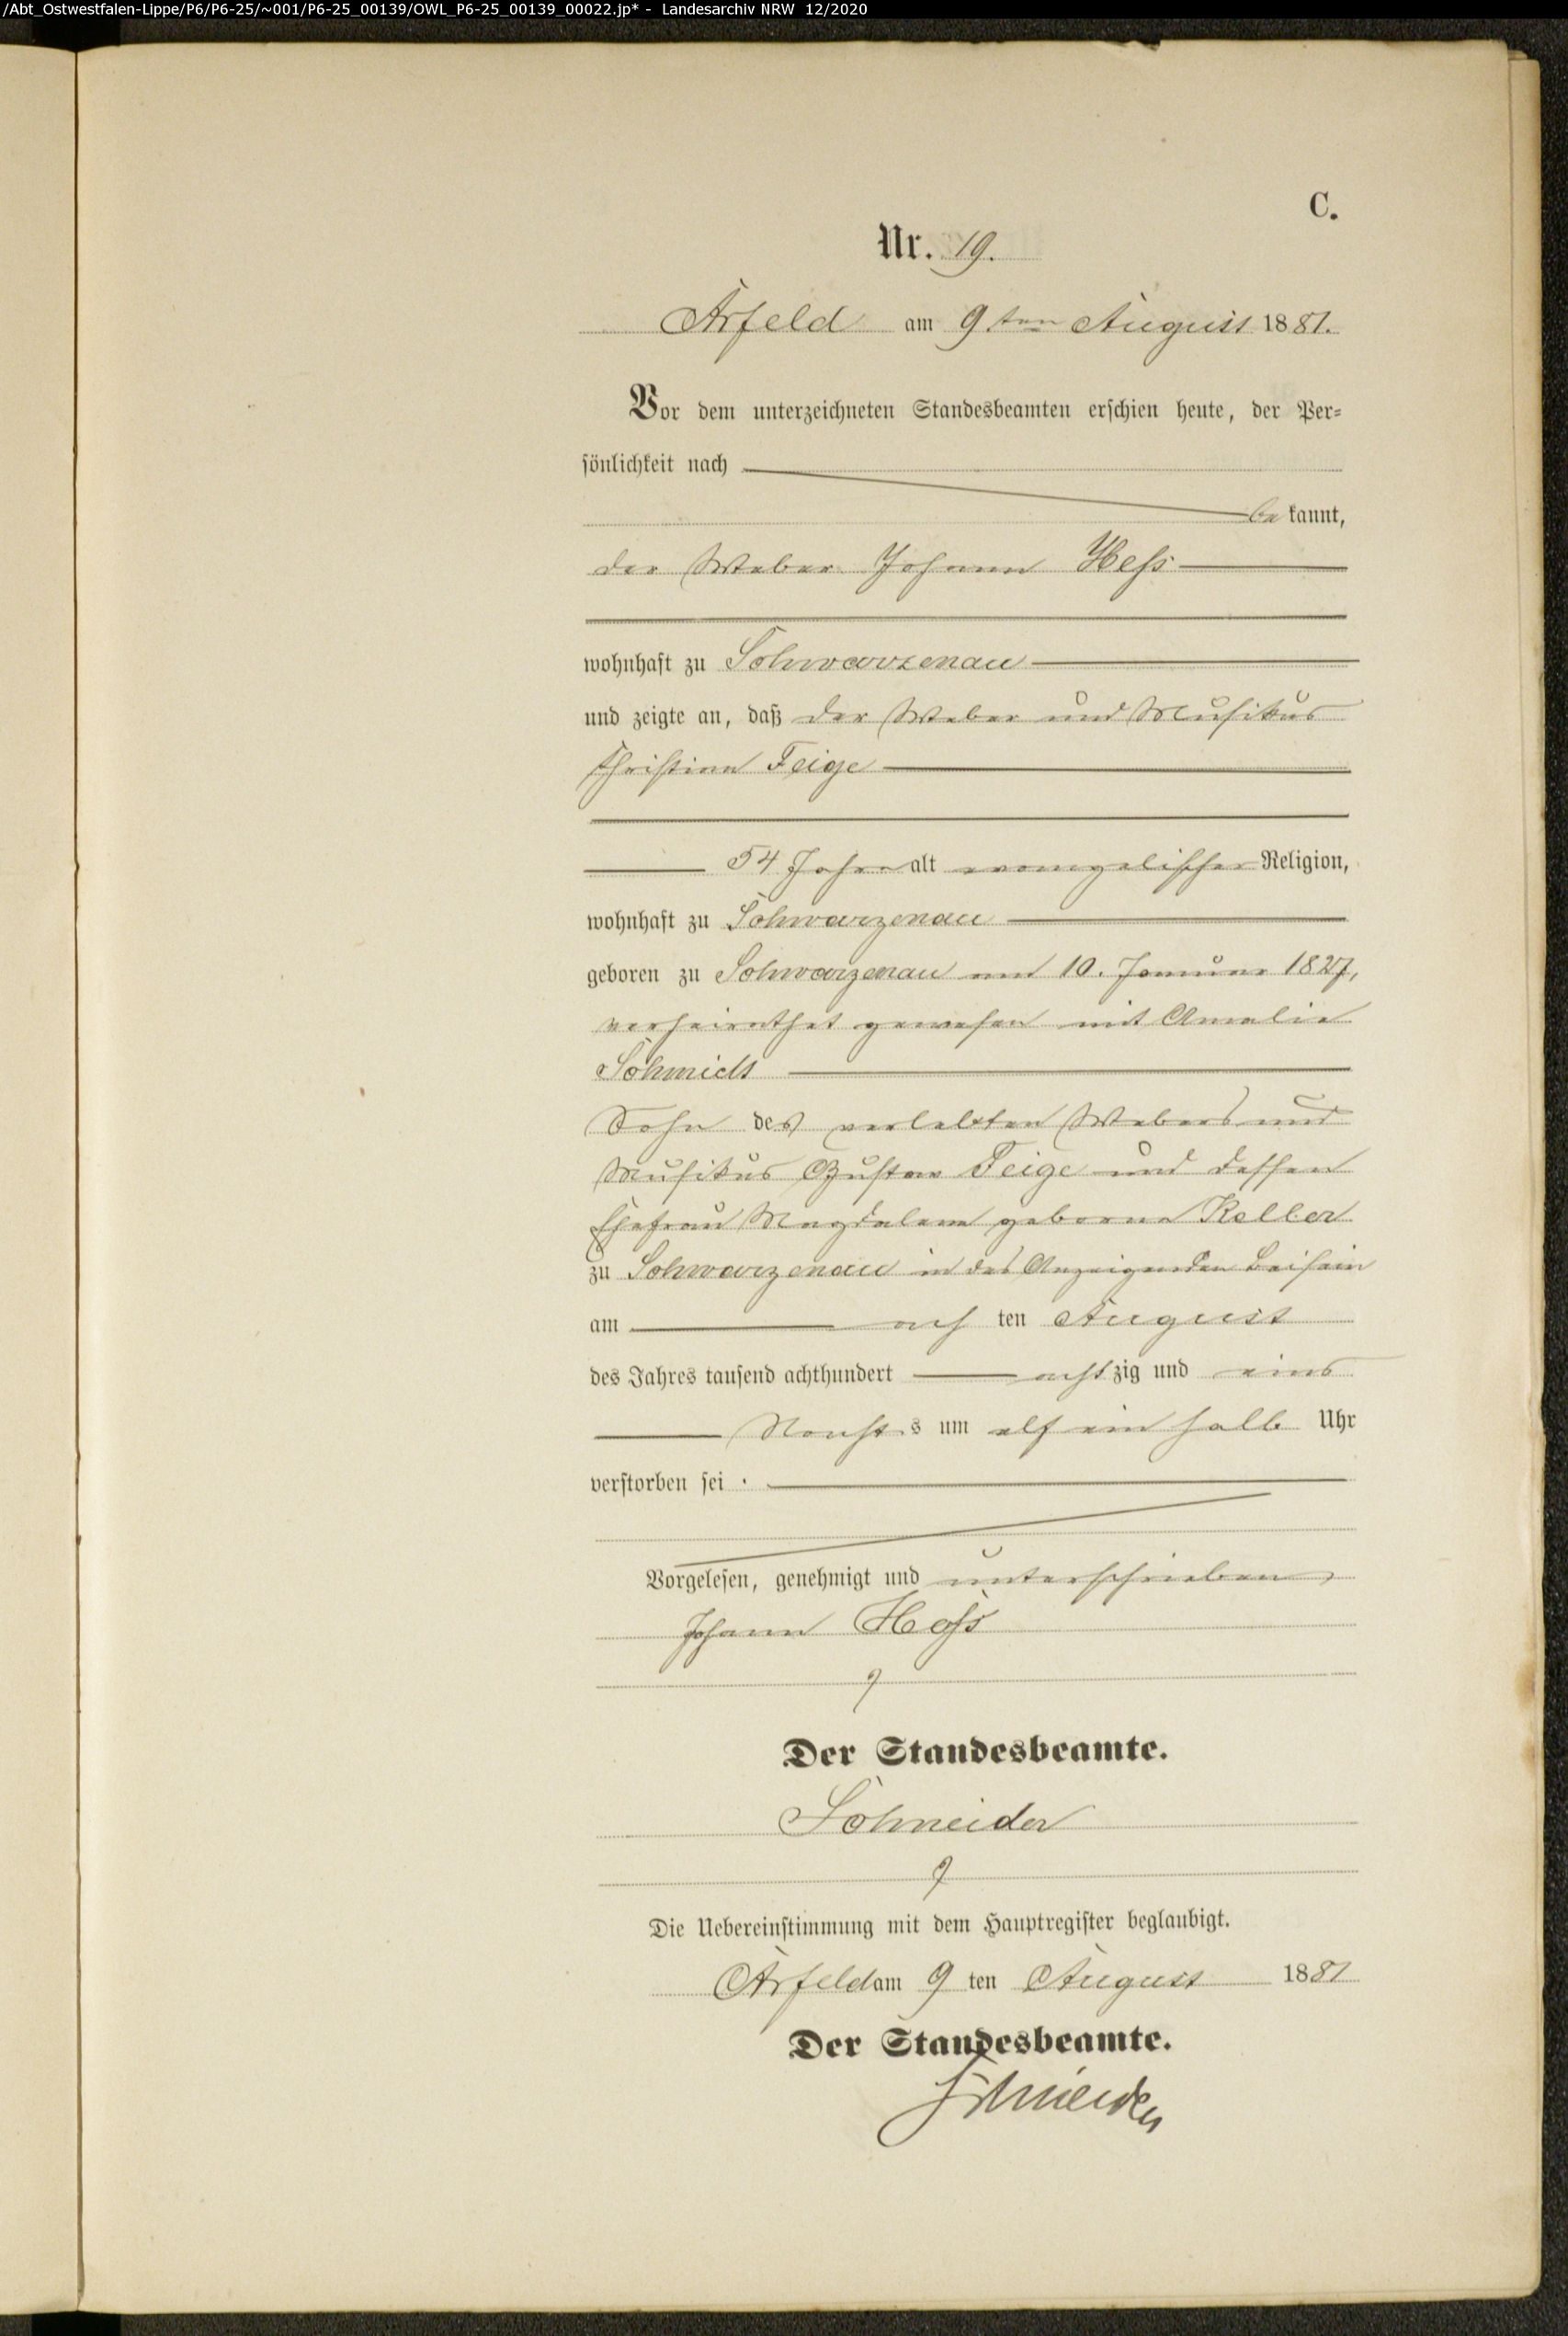 /Abt_Ostwestfalen-Lippe/P6/P6-25/~001/P6-25_00139/OWL_P6-25_00139_00022.jp* - Landesarchiv NRW 12/2020
C.
Nr. 19.
Arfeld am 9ten August 1881.
Vor dem unterzeichneten Standesbeamten erschien heute, der Per-
sönlichkeit nach
bekannt,
der Weber Johann Heß
wohnhaft zu Schwarzenau
und zeigte an, daß der Weber und Musikus
Christian Feige
54 Jahre alt evangelischer Religion,
wohnhaft zu Schwarzenau
geboren zu Schwarzenau am 10. Januar 1827,
verheirathet gewesen mit Amalie
Schmidt
Sohn des verlebten Webers und
Musikus Gustav Feige und dessen
Ehefrau Magdalena geborne Keller
zu Schwarzenau in des Anzeigenden Beisein
am ach ten August
des Jahres tausend achthundert achtzig und eins
Nachts um elf ein halb Uhr
verstorben sei.
Vorgelesen, genehmigt und unterschrieben,
Johann Heß
Der Standesbeamte.
Schneider
Die Uebereinstimmung mit dem Hauptregister beglaubigt.
Arfeld am 9 ten August 1881
Der Standesbeamte.
Schneider